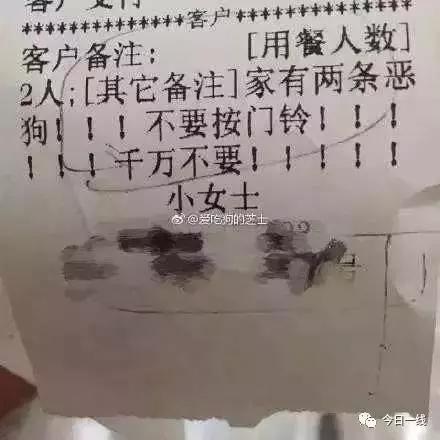 ******************客户******************
客户备注: [用餐人数]
2人;[其它备注]家有两条恶
狗!!!不要按门铃!!!
!!!千万不要!!!!!
小女士
@爱吃狗的芝士
今日一线